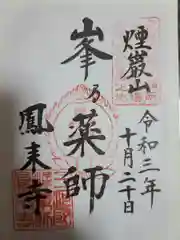 煙巖山
令和三年
十月二十日
峯乃薬師
鳳来寺